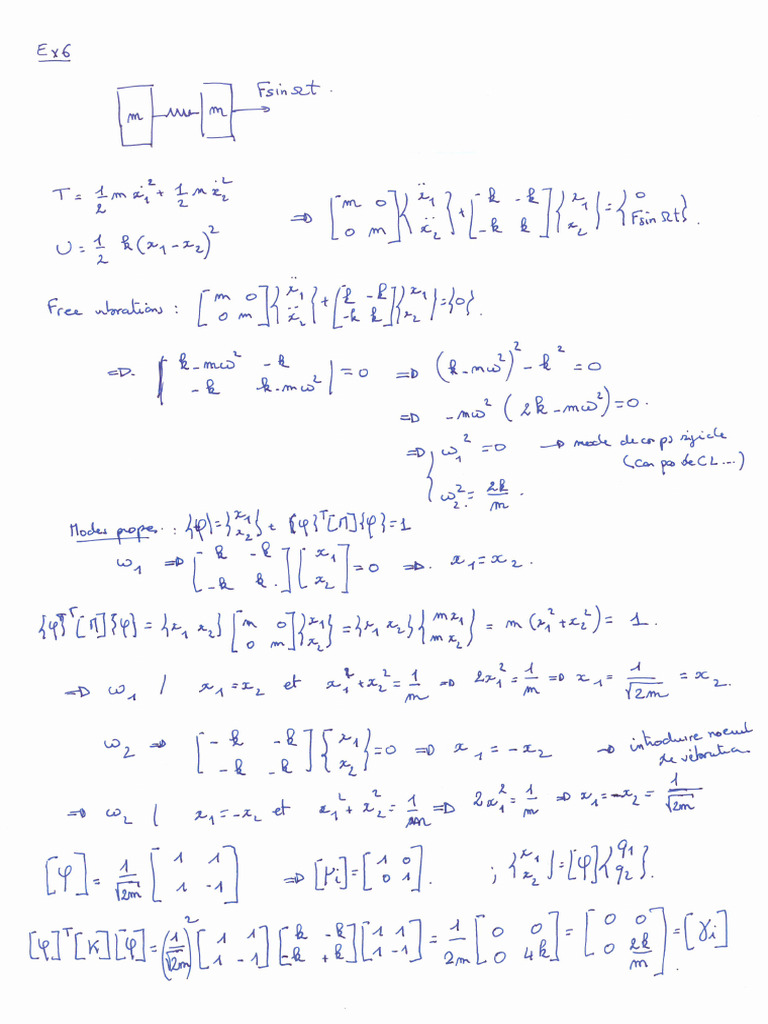 Ex6
m m F sin Ωt.
T = 1/2 m ẋ₁² + 1/2 m ẋ₂²
U = 1/2 k(x₁ - x₂)²
⇒ [m 0; 0 m]{ẍ₁; ẍ₂} + [-k -k; -k k]{x₁; x₂} = {0; F sin Ωt}.
Free vibrations : [m 0; 0 m]{ẍ₁; ẍ₂} + [k -k; -k k]{x₁; x₂} = {0}.
⇒. |k-mω² -k; -k k-mω²| = 0 ⇒ (k-mω²)² - k² = 0
⇒ -mω² (2k - mω²) = 0.
⇒ { ω₁² = 0 → mode de corps rigide
(car pas de CL ...)
ω₂² = 2k/m.
Modes propres. : {φ} = {x₁; x₂} + {φ}ᵀ[M]{φ} = 1
ω₁ ⇒ [k -k; -k k.][x₁; x₂] = 0 ⇒. x₁ = x₂.
{φ}ᵀ[M]{φ} = {x₁ x₂}[m 0; 0 m]{x₁; x₂} = {x₁ x₂}{mx₁; mx₂} = m(x₁² + x₂²) = 1.
⇒ ω₁ / x₁ = x₂ et x₁² + x₂² = 1/m ⇒ 2x₁² = 1/m ⇒ x₁ = 1/√2m = x₂.
ω₂ ⇒ [-k -k; -k -k]{x₁; x₂} = 0 ⇒ x₁ = -x₂ → introduire noeud
de vibration
⇒ ω₂ / x₁ = -x₂ et x₁² + x₂² = 1/m ⇒ 2x₁² = 1/m ⇒ x₁ = -x₂ = 1/√2m
[φ] = 1/√2m [1 1; 1 -1] ⇒ [μᵢ] = [1 0; 0 1]. ; {x₁; x₂} = [φ]{q₁; q₂}.
[φ]ᵀ[K][φ] = (1/√2m)² [1 1; 1 -1][k -k; -k +k][1 1; 1 -1] = 1/2m [0 0; 0 4k] = [0 0; 0 2k/m] = [γᵢ]